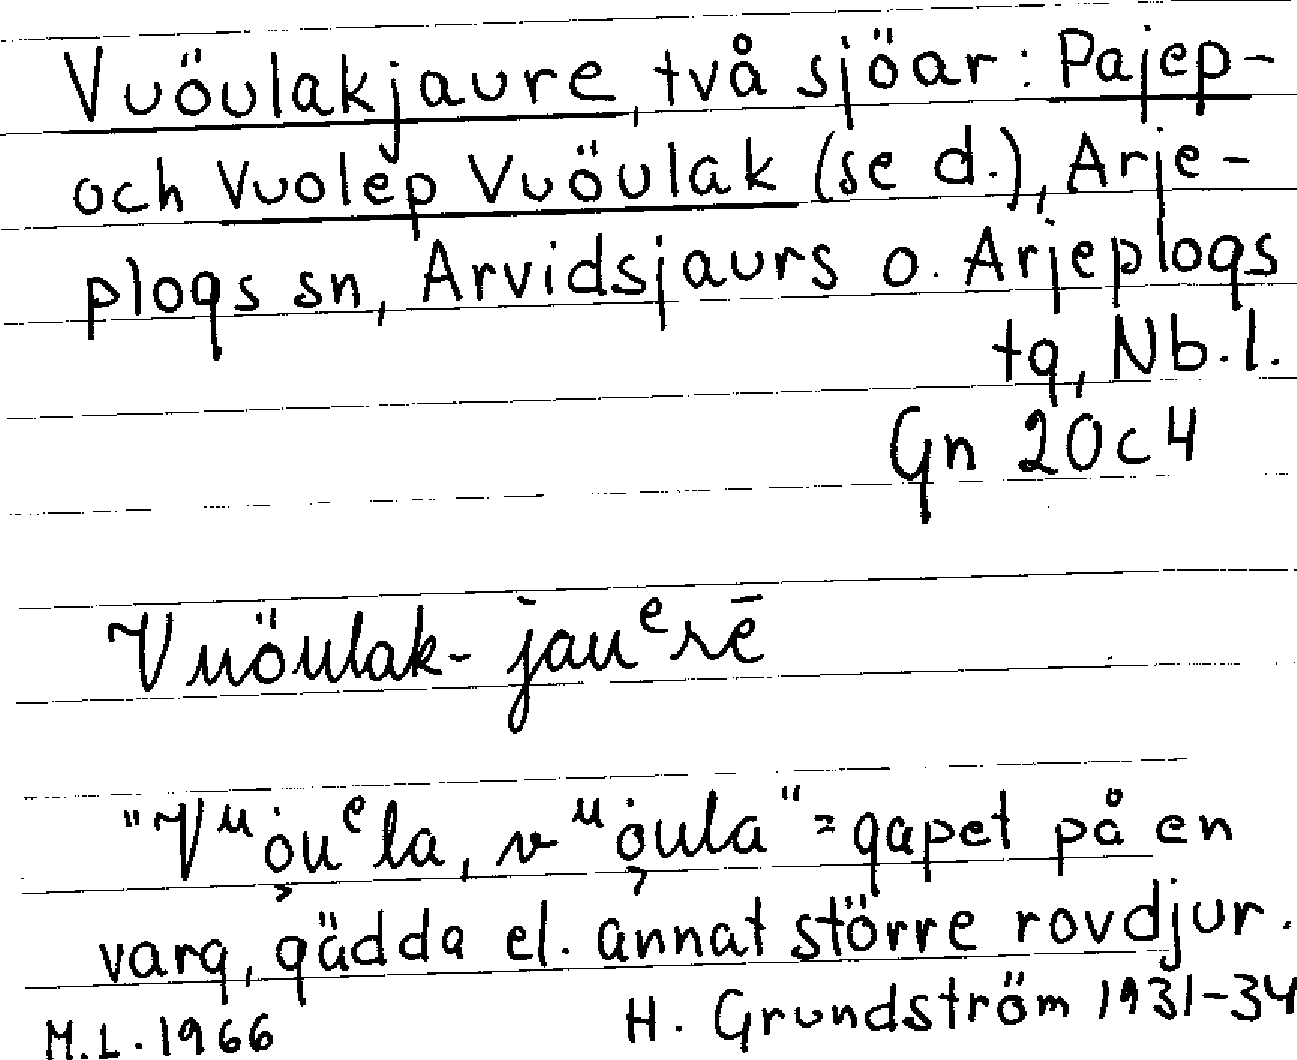 Vuöulakjaure, två sjöar: Pajep-
och Vuolep Vuöulak (se d.), Arje-
plogs sn, Arvidsjaurs o. Arjeplogs
tg, Nb.l.
Gn 20c4
Vuöulak-jauᵉrē
"Vᵘȯ̭uᵉla, vᵘȯ̭ula" = gapet på en
varg, gädda el. annat större rovdjur.
M.L. 1966 H. Grundström 1931-34